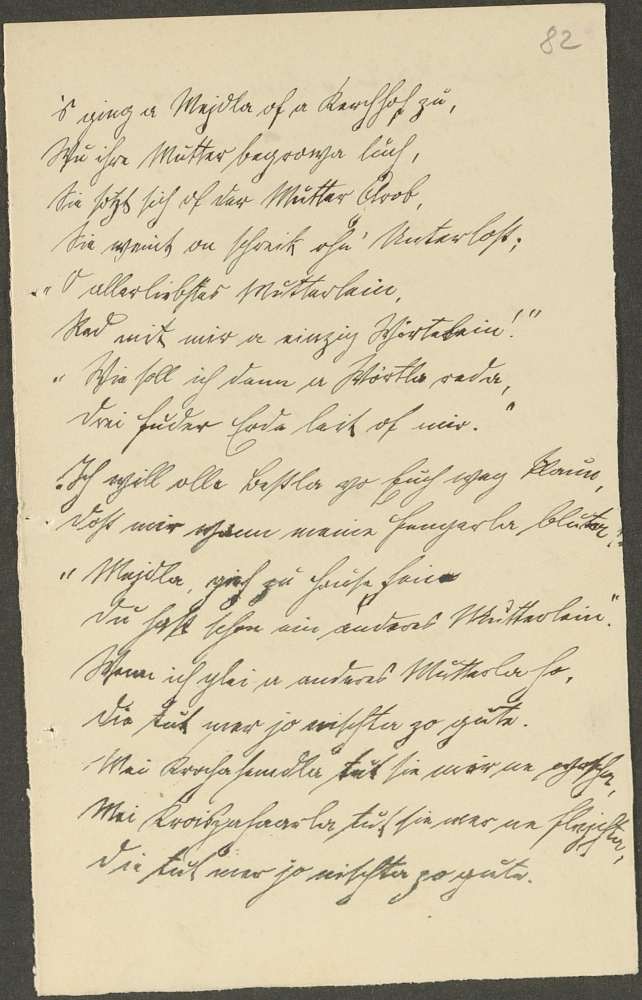 82
's ging a Mejdla of a Kerchhof zu,
Wu ihre Mutter begrowa luch,
Sie sotzt sich of der Mutter Grob,
Sie weint on schreit ohn' Unterloß;
"O allerliebstes Mutterlein,
Red mit mir a einzig Wörtelein!"
"Wie soll ich denn a Wörtla reda,
Drei Fuder Erda leit of mir."
"Ich will olle Bestla vo Euch weg klaun,
Doß mir wenn meine Fengerla bluta!"
"Mejdla, gieh zu Hause fein
Du hast schon ein anderes Mütterlein."
Wenn ich glei a anderes Mutterla ho,
Die tut mer jo nischta zo gute.
Mei Krochahemdla tut sie mir ne woscha,
Mei tut sie mer ne flejchta,
Die tut mer jo nischta zo gute.